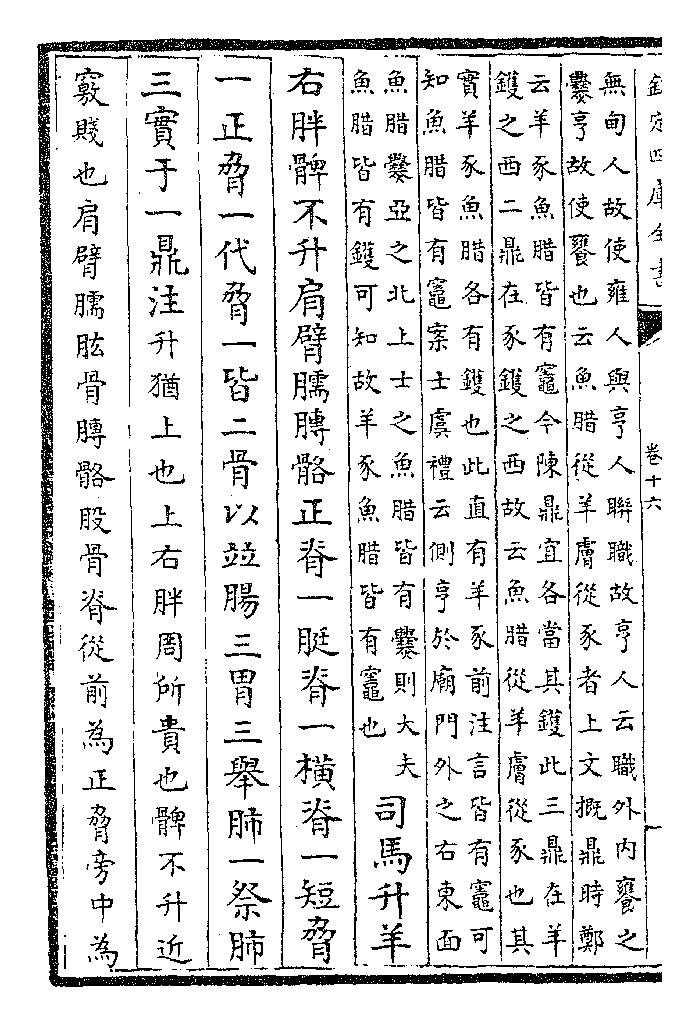 欽定四庫全書
卷十六
無甸人故使雍人與亨人聮職故亨人云職外内饔之
爨亨故使饔也云魚腊從羊膚從豕者上文概鼎時鄭
云羊豕魚腊皆有竈今陳鼎宜各當其鑊此三鼎在羊
鑊之西二鼎在豕鑊之西故云魚腊從羊膚從豕也其
實羊豕魚腊各有鑊也此直有羊豕前注言皆有竈可
知魚腊皆有竈案士虞禮云側亨於廟門外之右東面
魚腊爨亞之北上士之魚腊皆有爨則大夫
魚腊皆有鑊可知故羊豕魚腊皆有竈也
司馬升羊
右胖髀不升肩臂臑膞骼正脊一脡脊一橫脊一短脅
一正脅一代脅一皆二骨以並腸三胃三舉肺一祭肺
三實于一鼎注升猶上也上右胖周所貴也髀不升近
竅賤也肩臂臑肱骨膞骼股骨脊從前為正脅旁中為